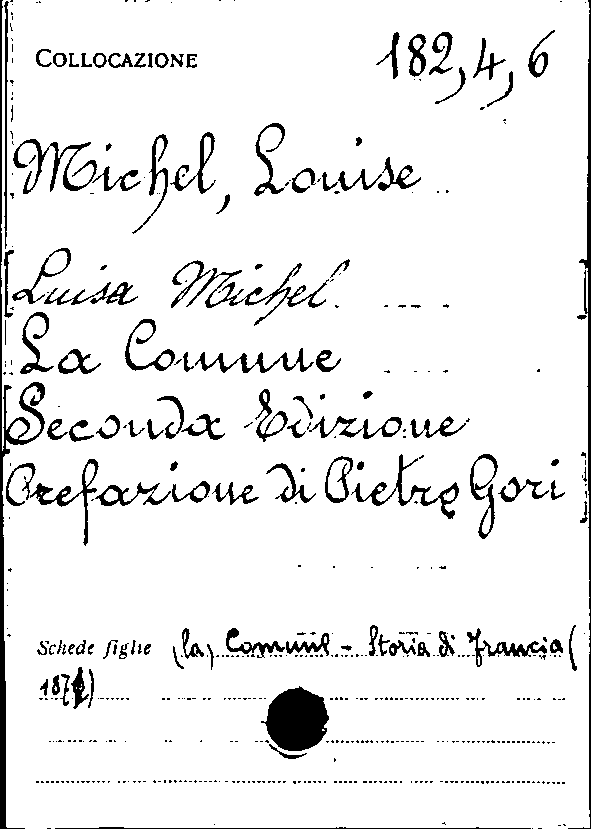 COLLOCAZIONE 182,4,6
Michel, Louise
Luisa Michel
La Comune
Seconda Edizione
Prefazione di Pietro Gori
Schede figlie (la) Comune - Storia di Francia (
1871)